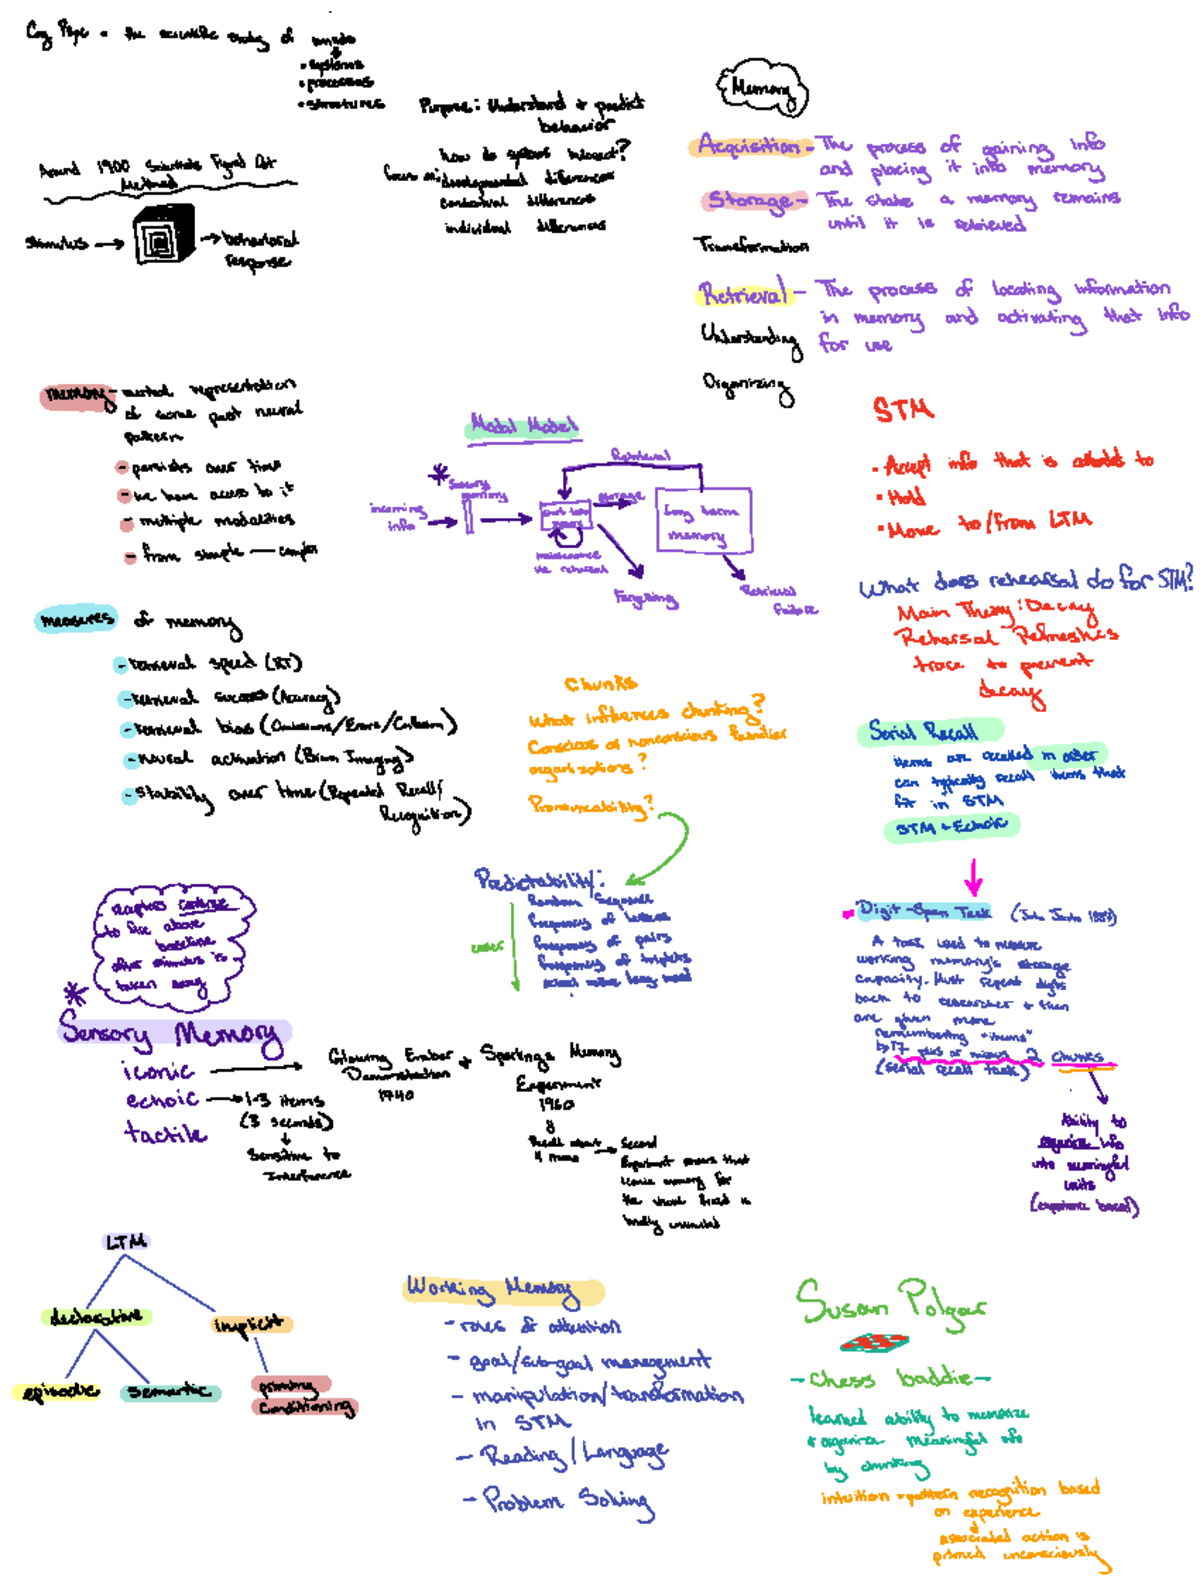 Cog Psyc = the scientific study of minds
• systems
• processes
• structures
Purpose: Understand + predict
behavior
how do systems interact?
focus on: developmental differences
contextual differences
individual differences
Around 1900 Scientists Figured Out
Method
stimulus → → behavioral
response
Memory
Acquisition - The process of gaining info
and placing it into memory
Storage - The state a memory remains
until it is retrieved
Transformation
Retrieval - The process of locating information
in memory and activating that info
for use
Understanding
Organizing
memory - mental representation
of some past neural
pattern
- persists over time
- we have access to it
- multiple modalities
- from simple — complex
Modal Model
Retrieval
* Sensory
memory
storage
incoming
info
short term
memory
long term
memory
maintenance
via rehearsal
Forgetting
Retrieval
Failure
STM
• Accept info that is attended to
• Hold
• Move to/from LTM
What does rehearsal do for STM?
Main Theory: Decay
Rehearsal Refreshes
trace to prevent
decay
measures of memory
- retrieval speed (RT)
- retrieval success (Accuracy)
- retrieval bias (Omissions/Errors/
- neural activation (Brain Imaging)
- stability over time (Repeated Recall/
Recognition)
Chunks
What influences chunking?
Conscious or nonconscious familiar
organizations?
Pronounceability?
Predictability:
Random Sequence
frequency of letters
frequency of pairs
frequency of triplets
easier
Serial Recall
items are recalled in order
can typically recall items that
fit in STM
STM + Echoic
Digit-Span Task (1887)
A task used to measure
working memory's storage
capacity. Must repeat digits
back to researcher + then
are given more
remembering "items"
by 7 plus or minus 2 chunks
(serial recall task)
Ability to
organize info
into meaningful
units
(experience based)
neurons continue
to fire above
baseline
after stimulus is
taken away
* Sensory Memory
iconic → Glowing Ember
Demonstration
1740
+ Sperling's Memory
Experiment
1960
echoic → 1-3 items
(3 seconds)
Sensitive to
Interference
tactile
Recall about
4 items
→ Second
Experiment shows that
iconic memory for
the visual field is
briefly unlimited
LTM
declarative
implicit
episodic
semantic
priming
conditioning
Working Memory
- roles of attention
- goal/sub-goal management
- manipulation/transformation
in STM
- Reading/Language
- Problem Solving
Susan Polgar
- chess baddie -
learned ability to memorize
+ organize meaningful info
by chunking
intuition → pattern recognition based
on experience
associated action is
primed unconsciously